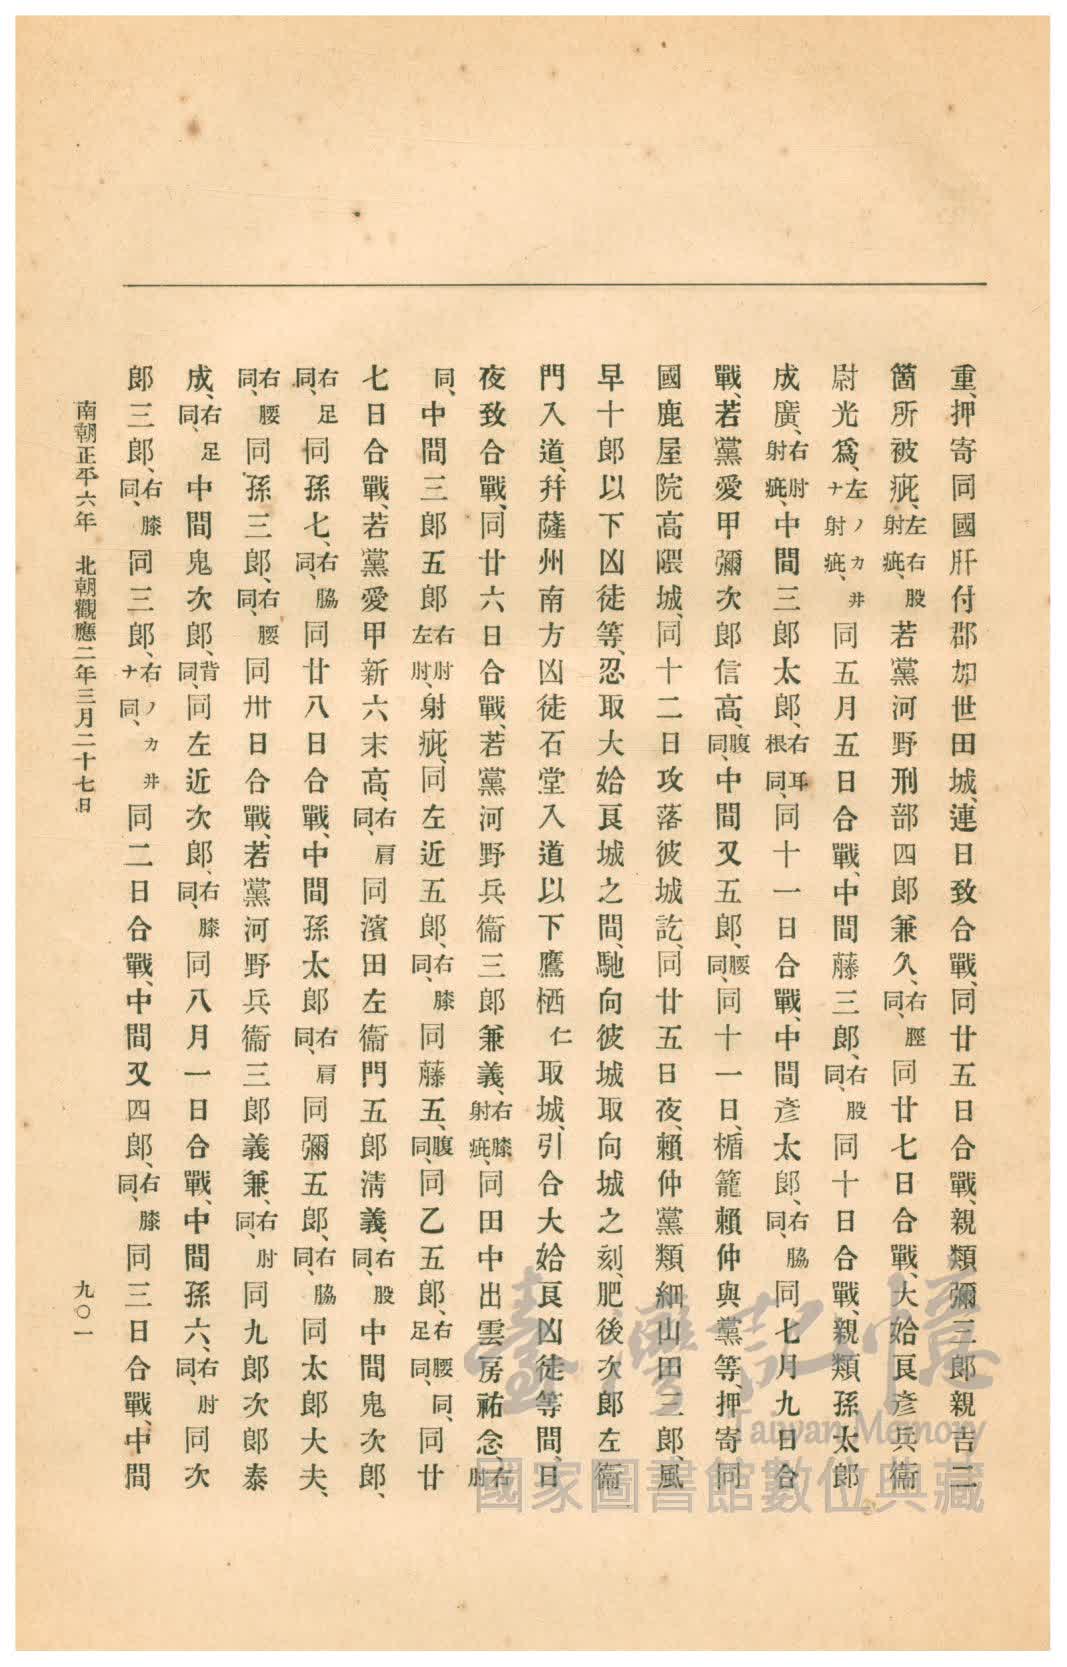 重、押寄同國肝付郡加世田城、連日致合戰、同廿五日合戰、親類彌三郎親吉二
箇所被疵、左右股射疵、若黨河野刑部四郎兼久、右脛同、同廿七日合戰、大姶良彥兵衞
尉光爲、左ノカ井ナ射疵、同五月五日合戰、中間藤三郎、右股同、同十日合戰、親類孫太郎
成廣、右肘射疵、中間三郎太郎、右耳根同、同十一日合戰、中間彥太郎、右脇同、同七月九日合
戰、若黨愛甲彌次郎信高、腹同、中間又五郎、腰同、同十一日、楯籠賴仲與黨等、押寄同
國鹿屋院高隈城、同十二日攻落彼城訖、同廿五日夜、賴仲黨類細山田三郎、風
早十郎以下凶徒等、忍取大姶良城之間、馳向彼城取向城之刻、肥後次郎左衞
門入道、幷薩州南方凶徒石堂入道以下鷹栖仁取城、引合大姶良凶徒等間、日
夜致合戰、同廿六日合戰、若黨河野兵衞三郎兼義、右膝射疵、同田中出雲房祐念、右肘
同、中間三郎五郎右肘左肘、射疵、同左近五郎、右膝同、同藤五、腹同、同乙五郎、右腰足同、同、同廿
七日合戰、若黨愛甲新六末高、右肩同、同濱田左衞門五郎淸義、右股同、中間鬼次郎、
右足同、同孫七、右脇同、同廿八日合戰、中間孫太郎右肩同、同彌五郎、右脇同、同太郎大夫、
右腰同、同孫三郎、右腰同、同卅日合戰、若黨河野兵衞三郎義兼、右肘同、同九郎次郎泰
成、右足同、中間鬼次郎、背同、同左近次郎、右膝同、同八月一日合戰、中間孫六、右肘同、同次
郎三郎、右膝同、同三郎、右ノカ井ナ同、同二日合戰、中間又四郎、右膝同、同三日合戰、中間
南朝正平六年 北朝觀應二年三月二十七日
九〇一
臺灣記憶
Taiwan Memory
國家圖書館數位典藏